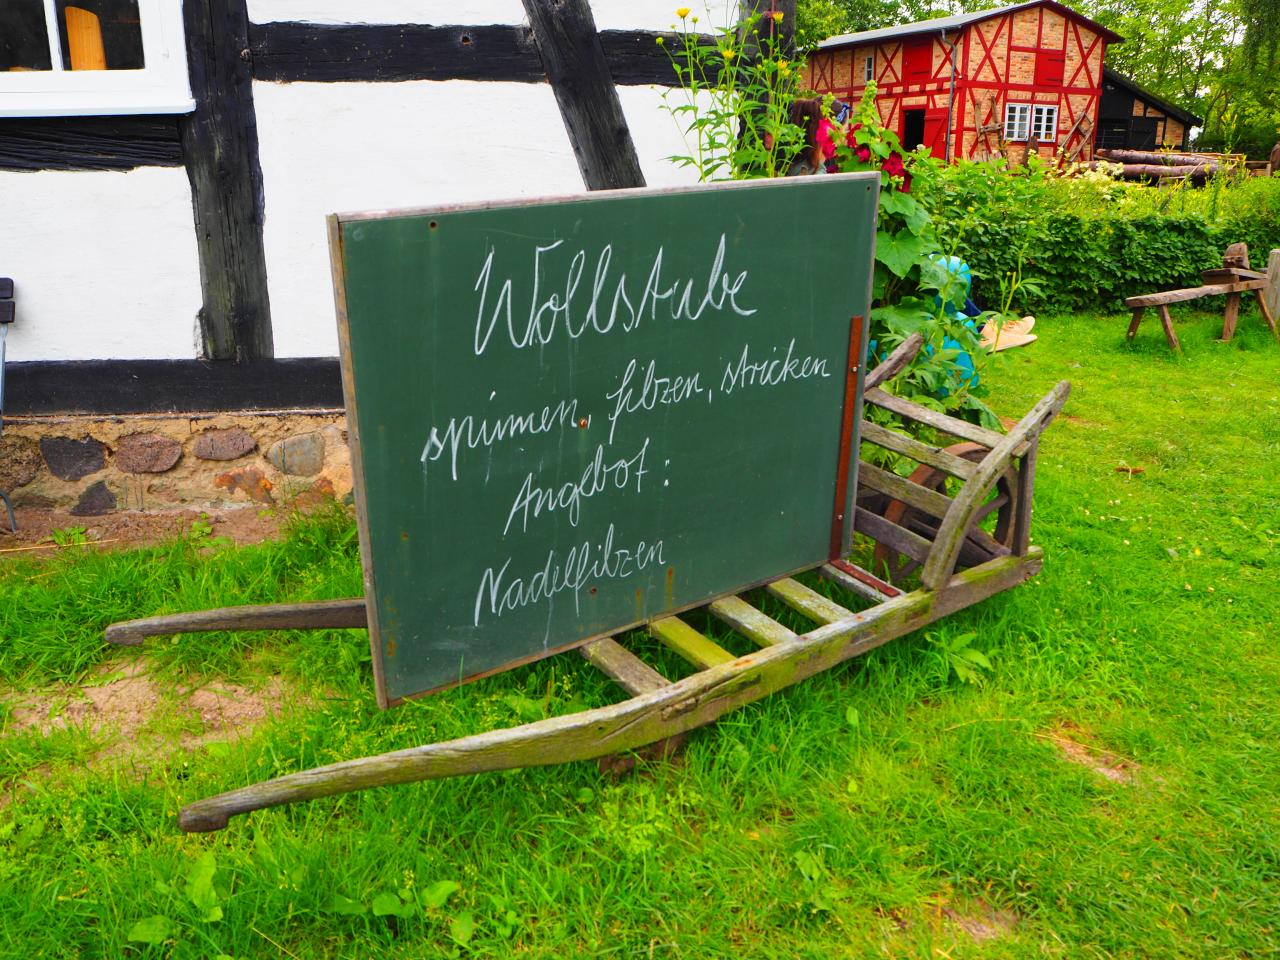 Wollstube
spinnen, filzen, stricken
Angebot:
Nadelfilzen